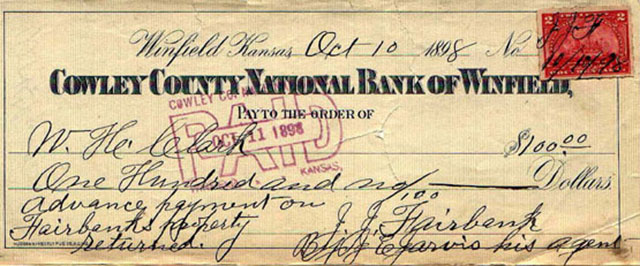 Winfield Kansas, Oct 10 1898 No.
COWLEY COUNTY NATIONAL BANK OF WINFIELD,
PAY TO THE ORDER OF
COWLEY CO.
PAID
OCT 11 1898
KANSAS.
W. H. Clark $100.00
One Hundred and no/100 Dollars.
Advance payment on
Fairbanks property
returned.
J. J. Fairbank
By J. E. Jarvis his agent
2 2